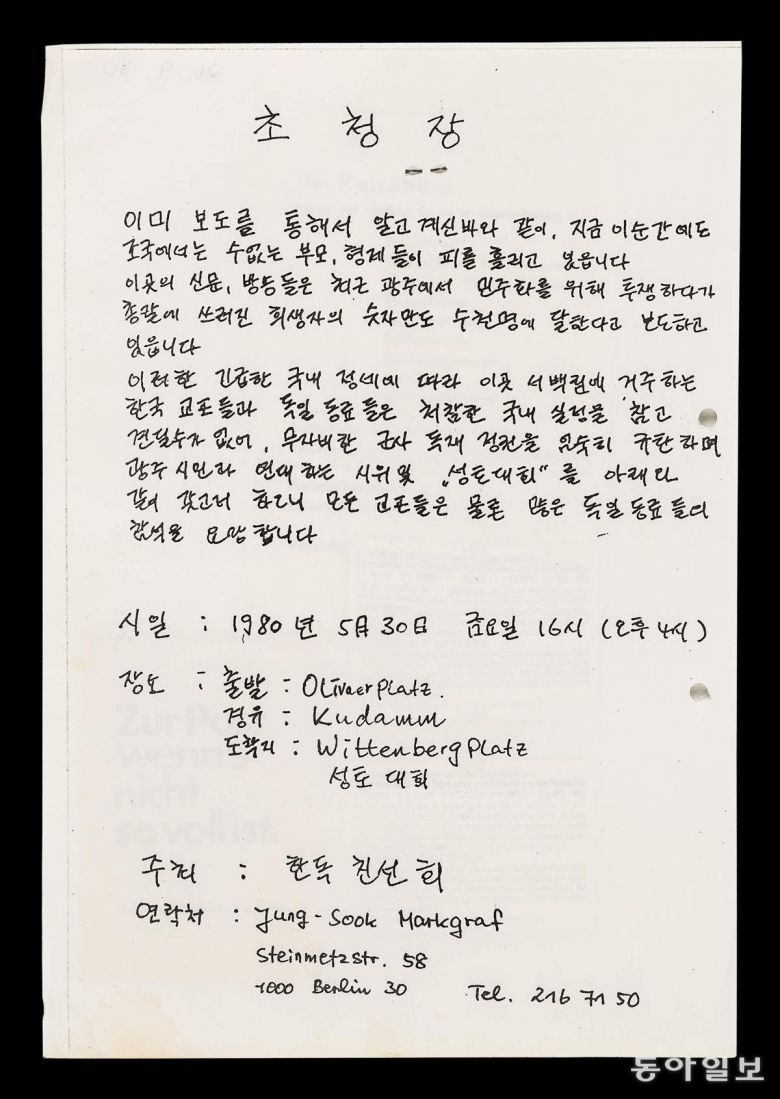 초 청 장
이미 보도를 통해서 알고 계신바와 같이, 지금 이순간에도
조국에서는 수없는 부모, 형제 들이 피를 흘리고 있읍니다
이곳의 신문, 방송들은 최근 광주에서 민주화를 위해 투쟁하다가
총칼에 쓰러진 희생자의 숫자만도 수천명에 달한다고 보도하고
있읍니다
이러한 긴급한 국내 정세에 따라 이곳 서백림에 거주하는
한국 교포들과 독일 동료들은 처참한 국내 실정을 참고
견딜수가 없어, 무자비한 군사 독재 정권을 엄숙히 규탄하며
광주 시민과 연대하는 시위 및 „성토대회"를 아래와
같이 갖고저 하오니 모든 교포들은 물론 많은 독일 동료들의
참석을 요망합니다
시일 : 1980년 5月 30日 금요일 16시 (오후 4시)
장소 : 출발 : Olivaerplatz.
경유 : Kudamm
도착지 : Wittenbergplatz
성토 대회
주최 : 한독 친선회
연락처 : Jung-Sook Markgraf
Steinmetzstr. 58
1000 Berlin 30 Tel. 216 71 50
Zur Po
wenn's
nicht
so voll ist.
동아일보